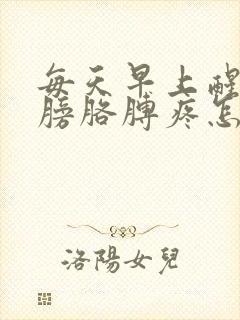 每天早上醒
膀胳膊疼怎
洛陽女兒